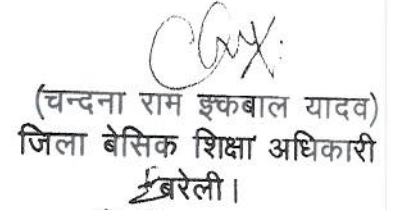 (चन्दना राम इकबाल यादव)
जिला बेसिक शिक्षा अधिकारी
बरेली।